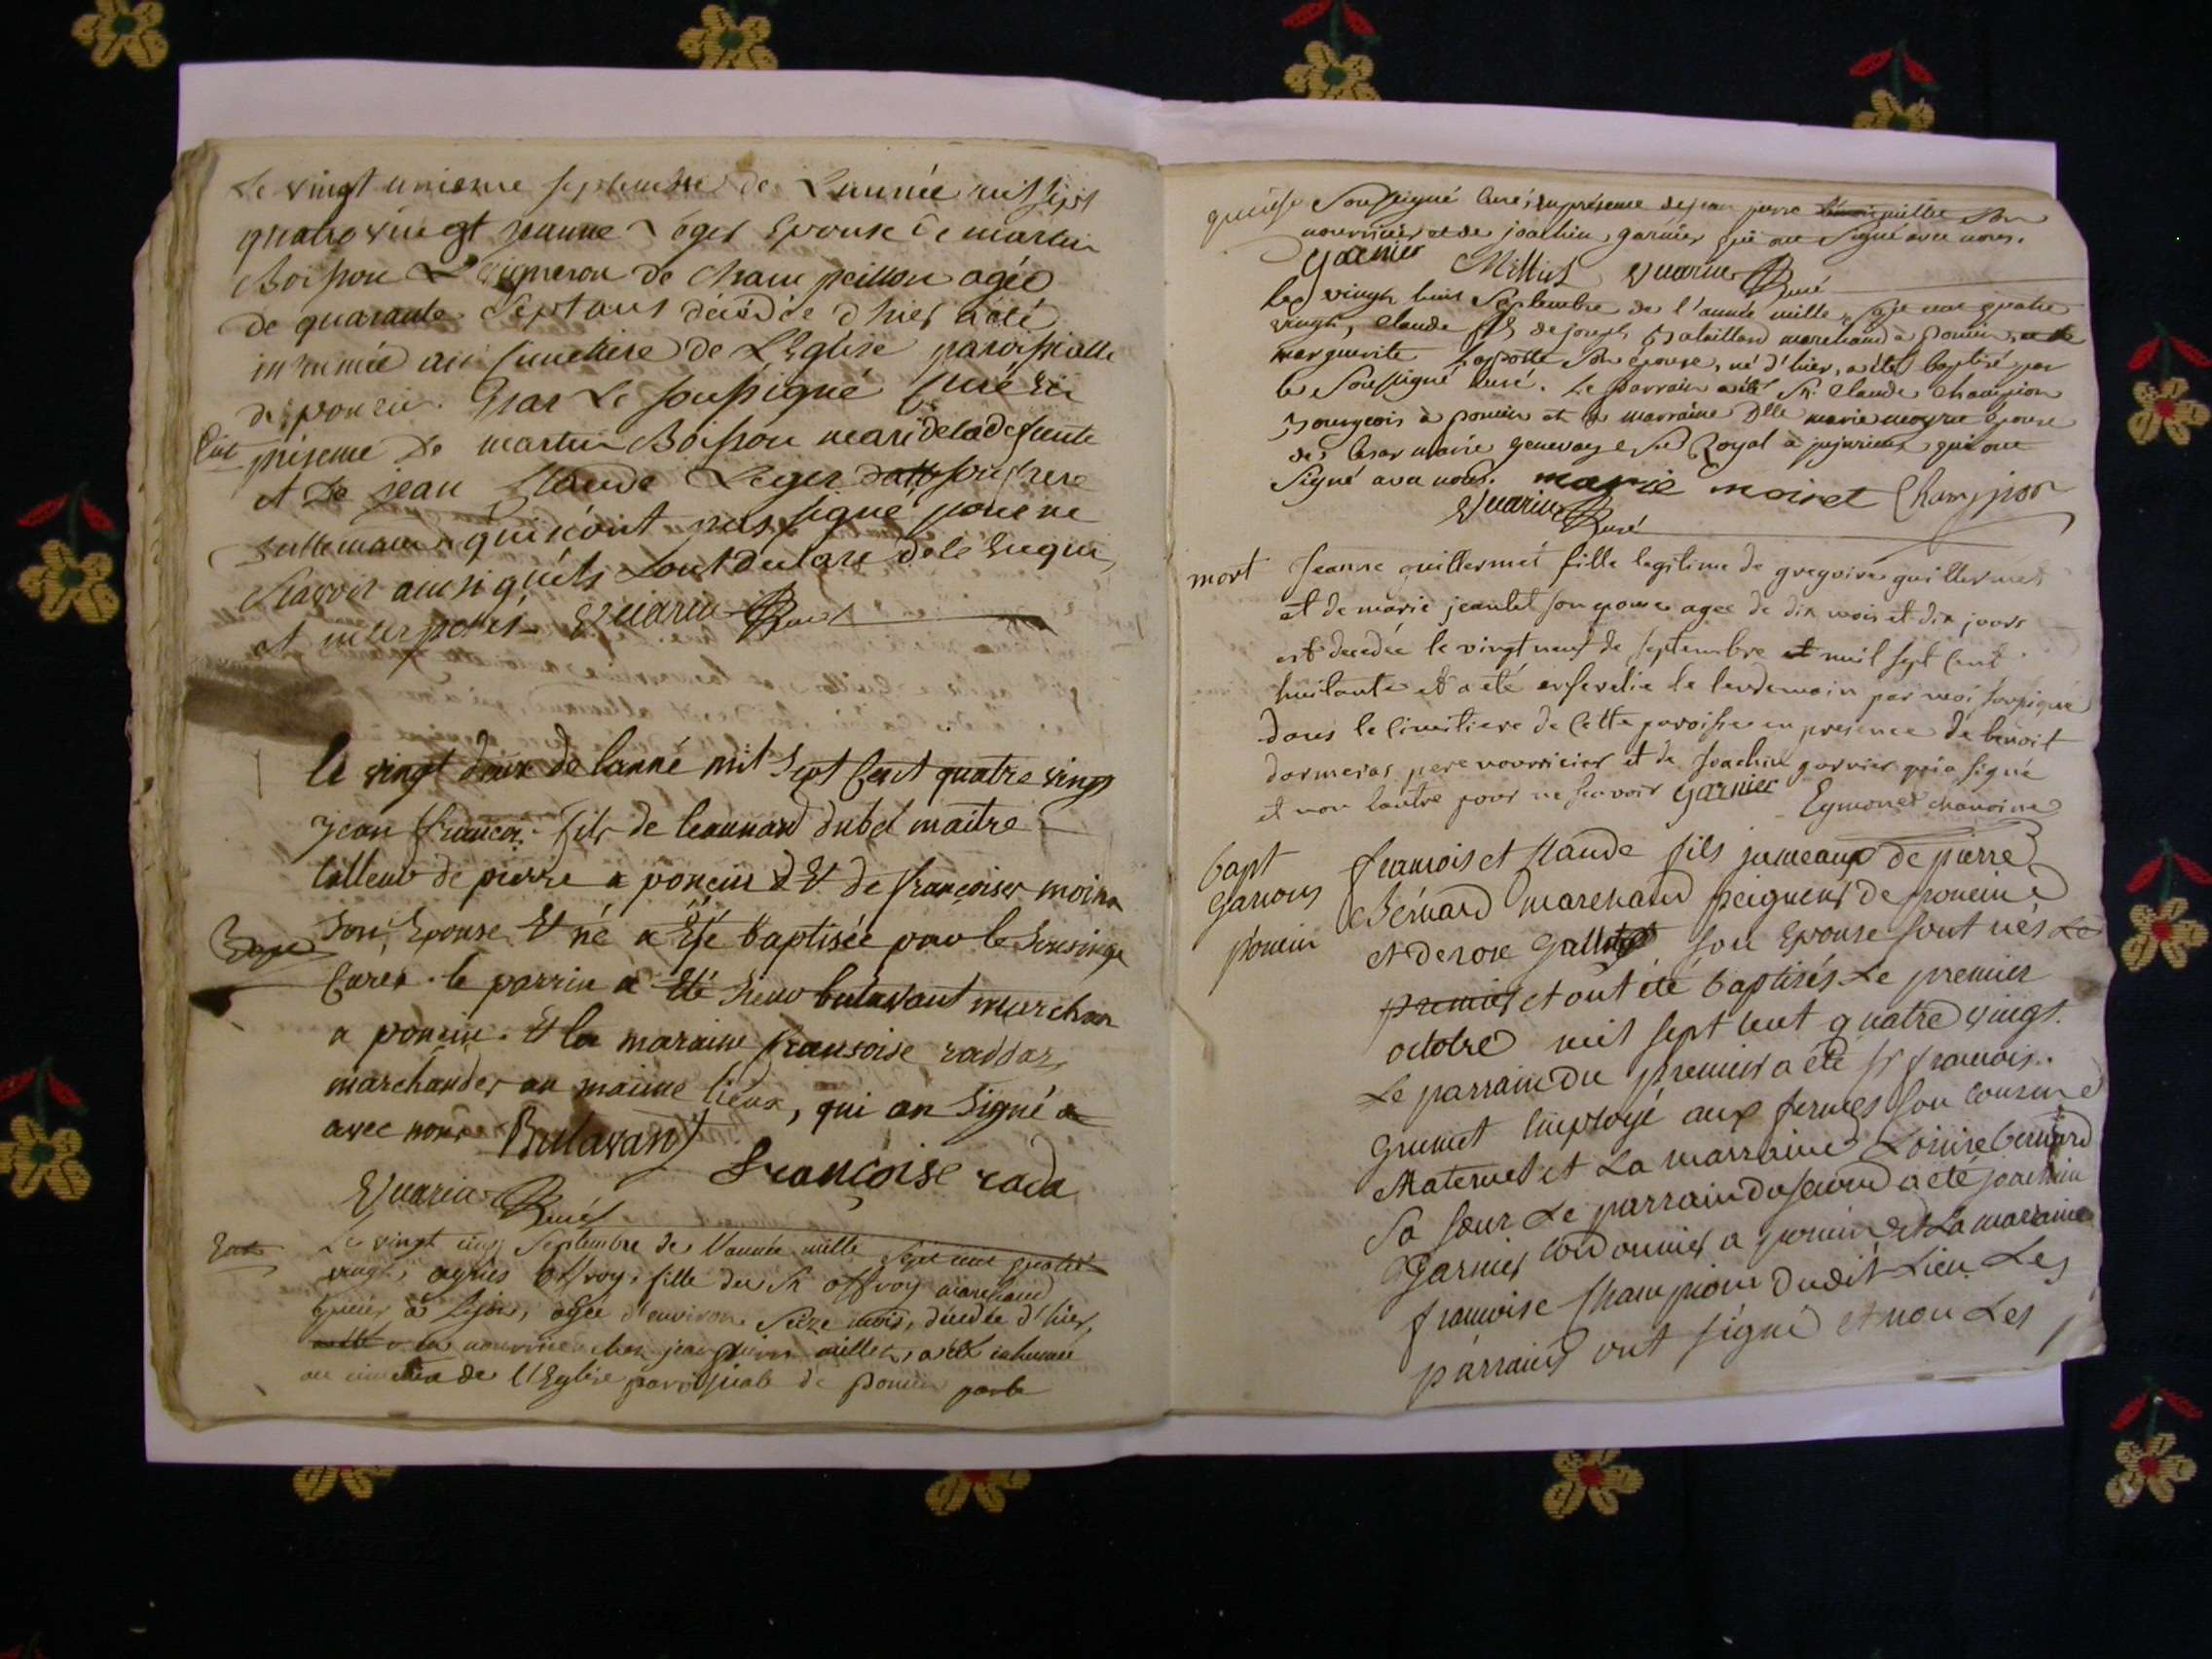 Le vingt unieme septembre de L'année mil sept
quatre vingt jeanne Leger Epouse de martin
Boisson Vigneron de Champeillon agée
de quarante Sept ans décédée d'hier a été
inhumée au Cimetiere de L'Eglise paroissialle
de poncin. par Le soussigné Curé En
Ent présence de martin Boisson mari de la defunte
et de jean Claude Leger son frere
qui n'ont pas signé pour ne
Scavoir ainsi qu'ils L'ont declaré de ce Enquis
et interpellés. Curé
le vingt deux de lanné mil Sept Cent quatre vingt
jean françois fils de leaunard dubet maitre
tailleur de pierre a poncin Et de françoise moina
Bapt
son Epouse Et né a Eté baptisée par le Sousigné
Curé. le parrin a Eté bulavant marchan
a poncin. Et la maraine fransoise raddaz
marchandes au maime lieux, qui on Signé
avec nous Bulavant
françoise rada
Curé
Ent
Le vingt cinq Septembre de l'année mille Sept cent quatre
vingt, agnes offroy, fille du Sr offroy marchand
épicier à Lyon, agée d'environ Seize mois, décédée d'hier,
chez jean pierre millet, a été inhumée
au cimetiere de l'Eglise paroissiale de poncin par le
Soussigné Curé, en présence de jean pierre millet Son
nourricier et de joachim garnier qui ont Signé avec nous.
garnier Milliet Curé
Le vingt huit Septembre de l'année mille Sept cent quatre
vingt, Claude fils de joseph Bataillard marchand à Poncin, et de
marguerite Son épouse, né d'hier, a été baptisé par
le Soussigné Curé. Le parrain a été Sr. Claude Champion
Bourgeois à poncin et la marraine Dlle marie epouse
de Cesar marie Royal à jujurieux qui ont
Signé avec nous. marie moiret Champion
Curé
mort
Jeanne guillermet fille legitime de gregoire guillermet
et de marie jeantet son epouse agee de dix mois et dix jours
est decedée le vingt neuf de septembre mil sept Cent
huitante et a eté ensevelie le lendemain par moi soussigné
dans le Cimitiere de Cette paroisse en presence de benoit
dormeras pere nourricier et de Joachim garnier qui a signé
et non lautre pour ne scavoir garnier Eymonet chanoine
bapt
garcons
poncin
francois et Claude fils jumeaux de pierre
Bernard marchand peigneur de poncin
et de rose son Epouse sont nés Le
premier et ont été baptisés Le premier
octobre mil sept cent quatre vingt.
Le parrain du premier a été Sr francois
Grumet Employé aux fermes son cousin
Maternel et La marraine Louise bernard
Sa soeur Le parrain du second a été joachim
Garnier Cordonnier a poncin et La marraine
francoise Champion dudit Lieu Les
parrains ont signé et non Les